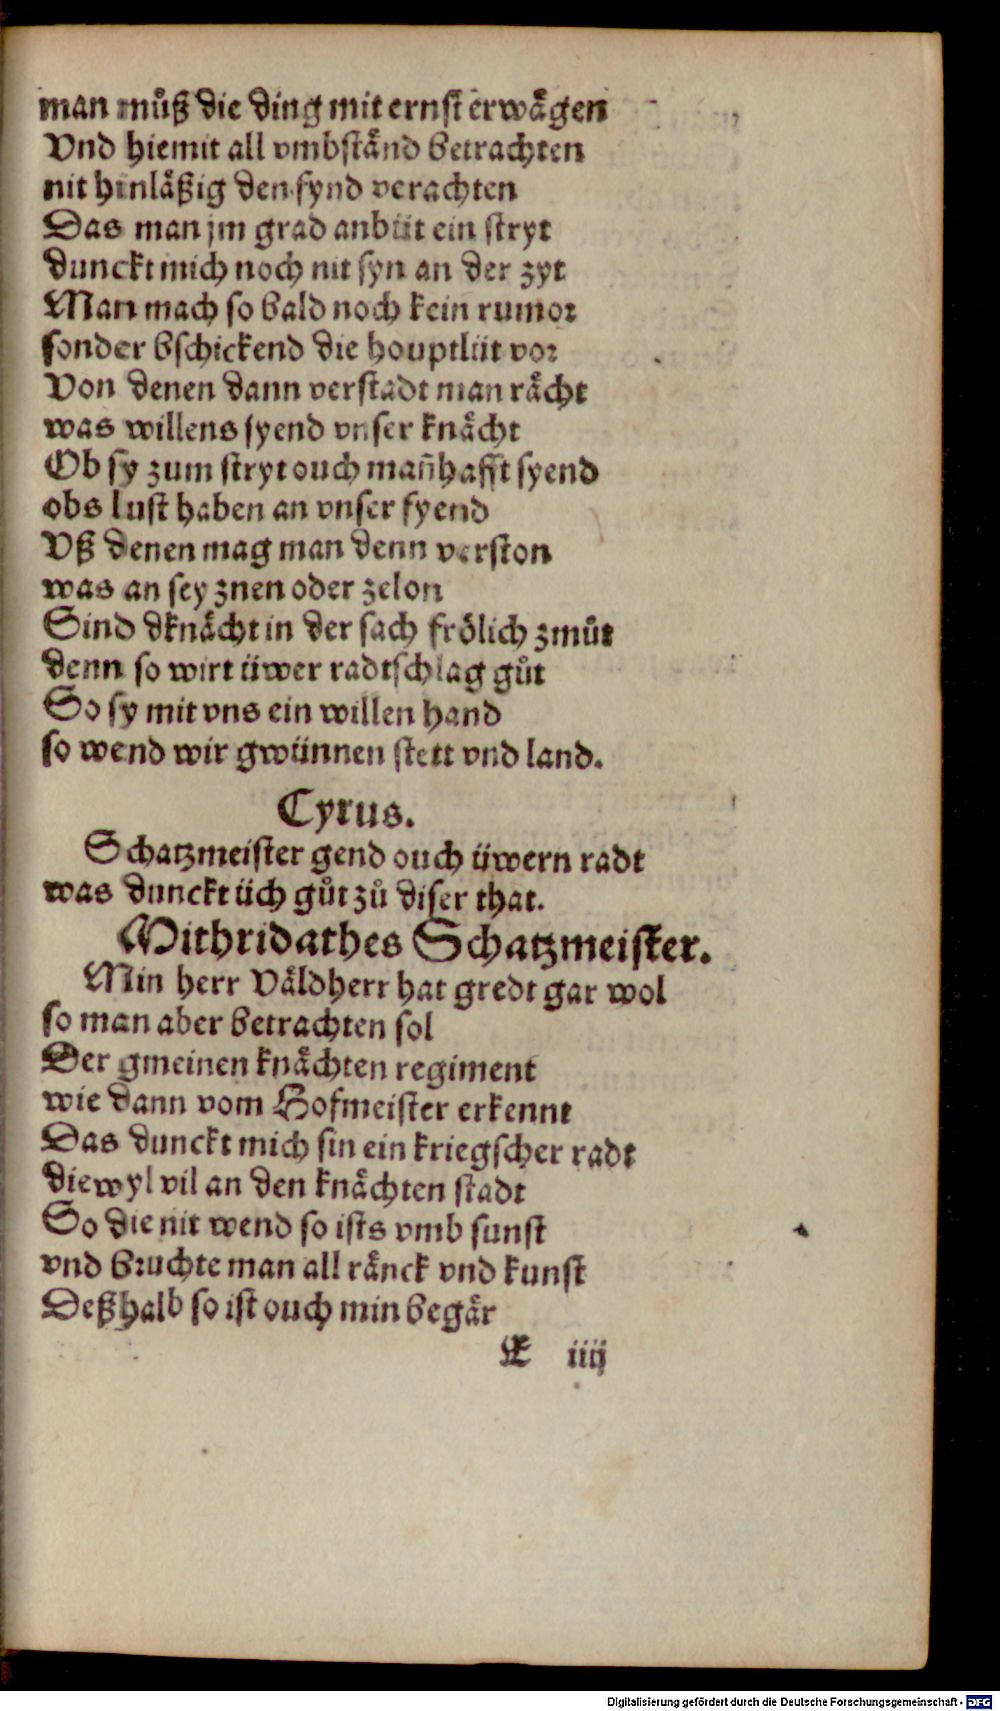 man můß die ding mit ernst erwågen
Vnd hiemit all vmbstånd betrachten
nit hinlåßig den fynd verachten
Das man jm grad anbüt ein stryt
dunckt mich noch nit syn an der zyt
Man mach so bald noch kein rumor
sonder bschickend die houptlüt vor
Von denen dann verstadt man råcht
was willens syend vnser knåcht
Ob sy zum stryt ouch mañhafft syend
obs lust haben an vnser fyend
Vß denen mag man denn verston
was an sey znen oder zelon
Sind dknåcht in der sach frölich zmůt
denn so wirt üwer radtschlag gůt
So sy mit vns ein willen hand
so wend wir gwünnen stett vnd land.
Cyrus.
Schatzmeister gend ouch üwern radt
was dunckt üch gůt zů diser that.
Mithridathes Schatzmeister.
Min herr Våldherr hat gredt gar wol
so man aber betrachten sol
Der gmeinen knåchten regiment
wie dann vom Hofmeister erkennt
Das dunckt mich sin ein kriegscher radt
diewyl vil an den knåchten stadt
So die nit wend so ists vmb sunst
vnd bruchte man all rånck vnd kunst
Deßhalb so ist ouch min begår
E iiij
Digitalisierung gefördert durch die Deutsche Forschungsgemeinschaft - DFG